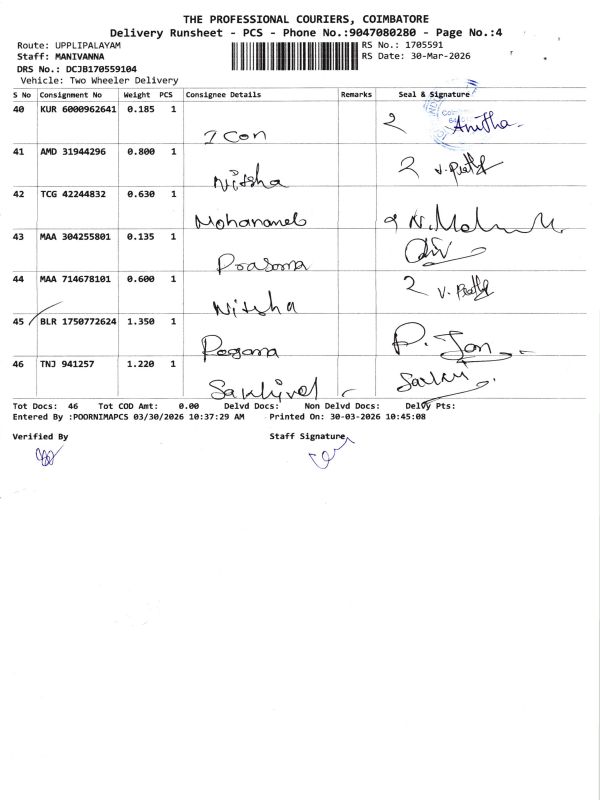 THE PROFESSIONAL COURIERS, COIMBATORE
Delivery Runsheet - PCS - Phone No.:9047080280 - Page No.:4
Route: UPPLIPALAYAM RS No.: 1705591
Staff: MANIVANNA RS Date: 30-Mar-2026
DRS No.: DCJB170559104
Vehicle: Two Wheeler Delivery
S No Consignment No Weight PCS Consignee Details Remarks Seal & Signature
40 KUR 6000962641 0.185 1
I Con 2 Anitha
41 AMD 31944296 0.800 1
Nitsha 2
42 TCG 42244832 0.630 1
43 MAA 304255801 0.135 1
Prasoma
44 MAA 714678101 0.600 1
Nitsha 2
45 BLR 1750772624 1.350 1
46 TNJ 941257 1.220 1
Tot Docs: 46 Tot COD Amt: 0.00 Delvd Docs: Non Delvd Docs: Delvy Pts:
Entered By :POORNIMAPCS 03/30/2026 10:37:29 AM Printed On: 30-03-2026 10:45:08
Verified By Staff Signature